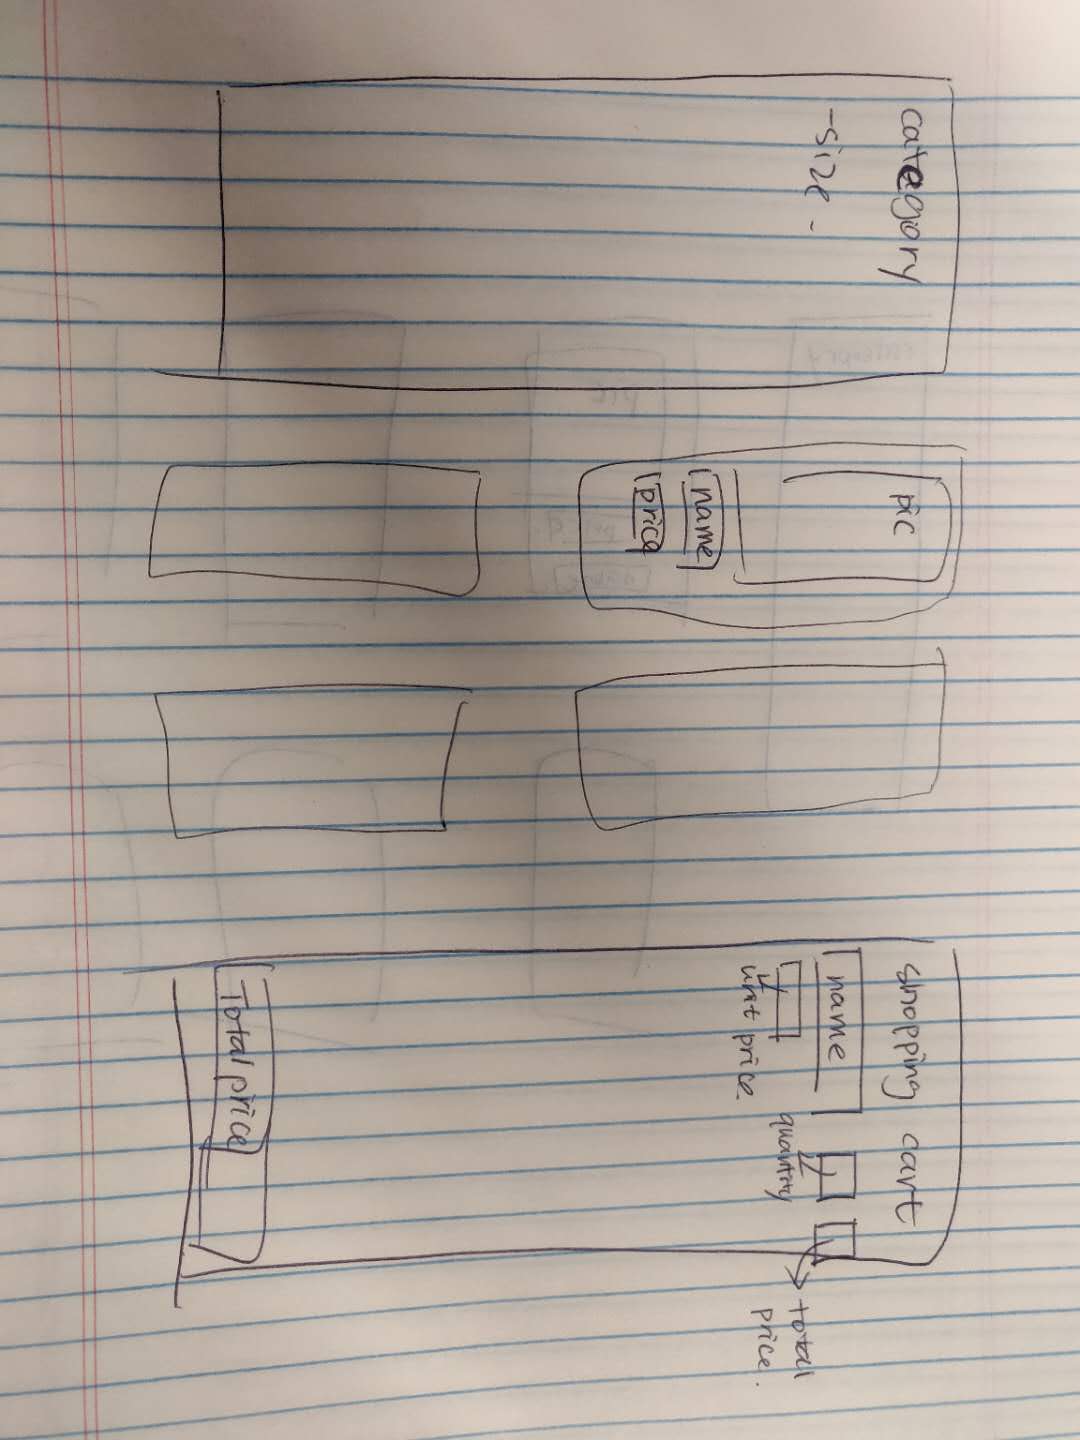 category
-size -
pic
name
price
shopping cart
name
unit price
quantity
total
price.
Total price